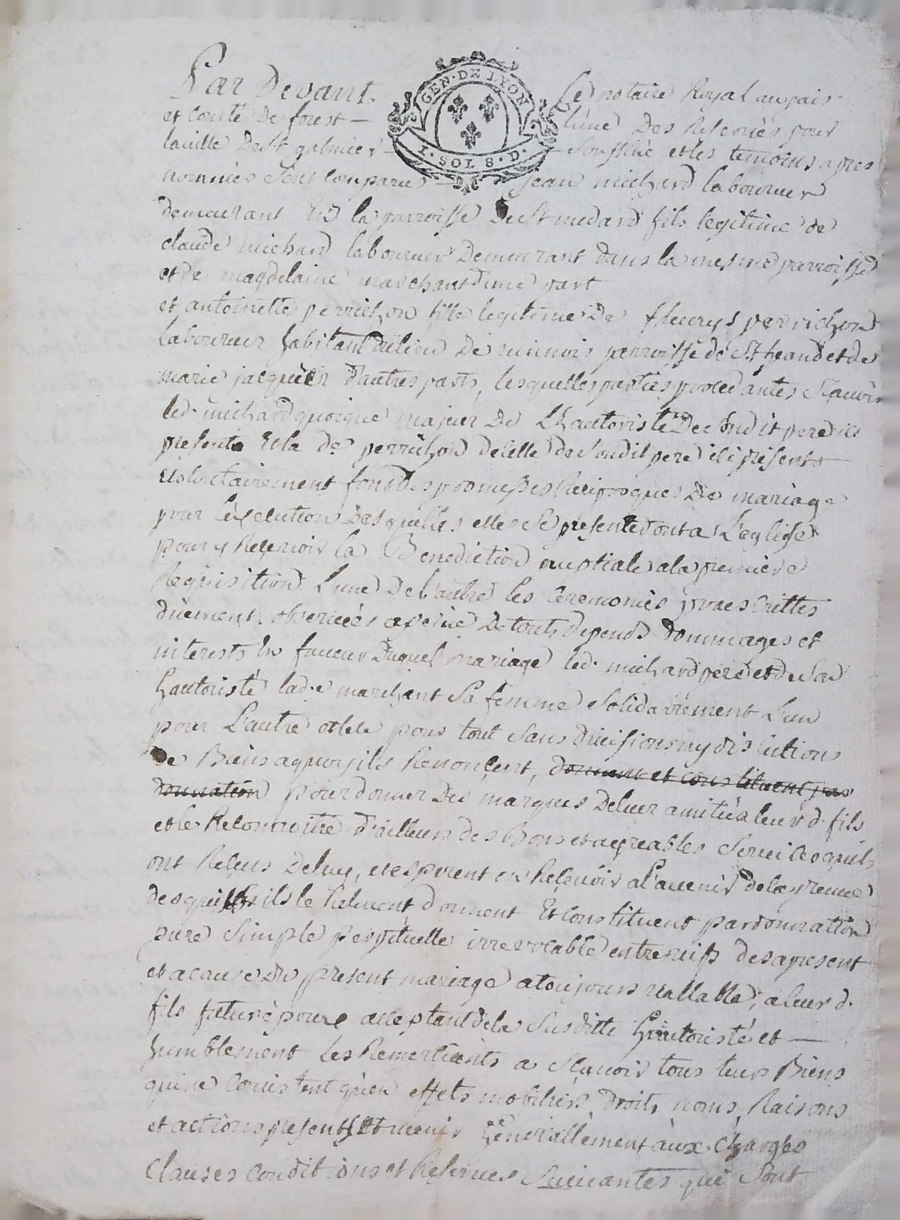 Par Devant Le notaire Royal au pais
GEN · DE LYON
et Conté De forest — lune Des Reservés pour
laville De St galmier — soussigné et les temoins apres
1 · SOL 8 · D ·
nommés sont comparus — Jean michard laboureur
demeurant En la parroisse De St medard fils legitime de
claude michard laboureur Demeurant dans la mesme perroisse
et de magdelaine marchant dune part
et antoinette perrichon fille legitime De fleurys perrichon
laboureur habitant du lieu De parroisse de St heand et de
marie jacquier d'autres parts, lesquelles parties procedantes scavoir
led. michard quoique majeur De Lhautoristé De sondit pere icy
presente Et la de perrichon de celle de sondit pere icy present
Volontairement font les promesses Reciproques De mariage
pour Lexecution Desquelles elles se presenteront a L'eglise
pour y Recevoir la Benediction nuptiale a la premiere
Requisition Lune De l'autre les Ceremonies praescrittes
duement observées a peine De touts depends Dommages et
interests En faveur Duquel mariage led. michard pere et de son
hautoristé lad.e marchant sa femme solidairement L'un
pour L'autre et le pour tout sans divisions ny discutions
De Biens a quoy ils Renonçent, donnent et constituent par
donnation pour donner Des marques De leur amitié a leur d. fils
et le Reconnoitre d'ailleurs des Bons et agreables service quils
ont Recus De luy, et esperent en Recevoir a l'avenir de la preuve
desquels ils le Relevent donnent Et Constituent par donnation
pure simple perpetuelle irrevocable entre vifs des a present
et a cause Du present mariage a toujours vallable, a leur d.
fils futur epoux acceptant de la susditte hautoristé et —
humblement les Remerciants a scavoir tous leurs Biens
qui ne consistent qu'en effets mobiliers Droits, noms, Raisons
et actions presents Et avenir generallement aux Charges
Clauses Conditions et Reserves suivantes qui sont